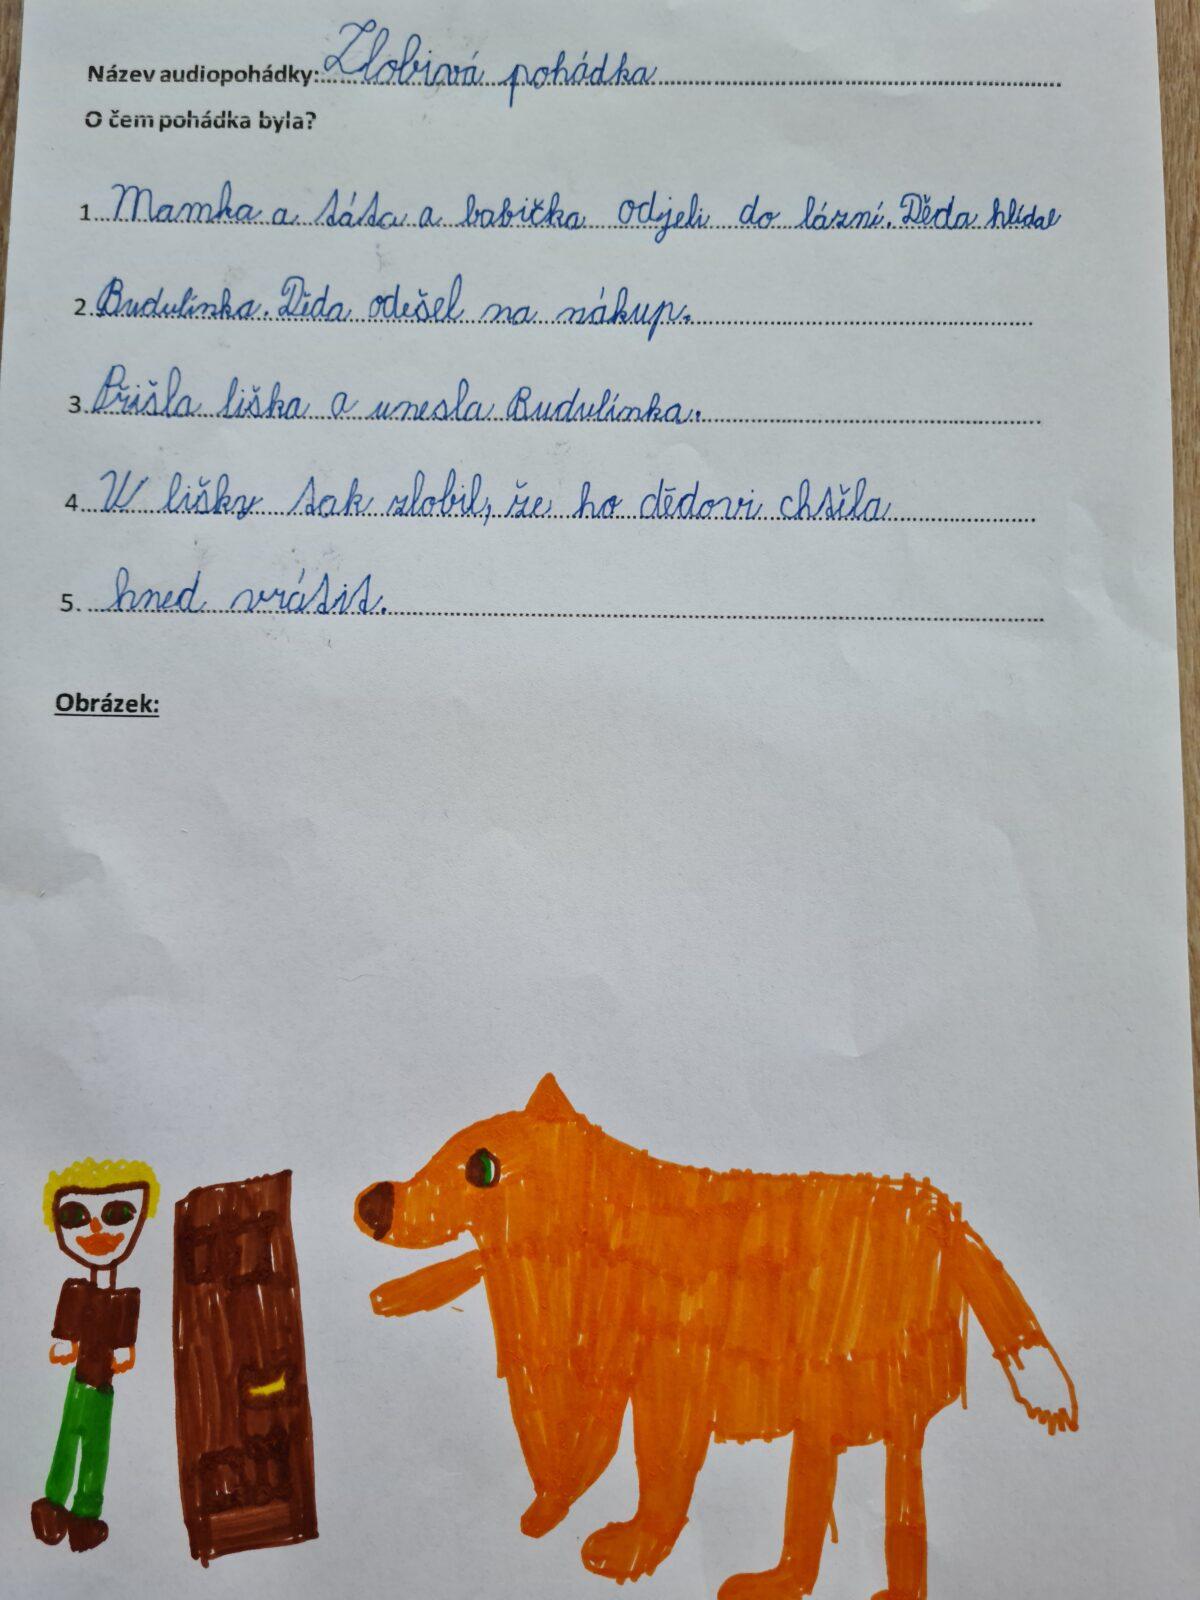 Název audiopohádky: Zlobivá pohádka
O čem pohádka byla?
1. Mamka a táta a babička odjeli do lázní. Děda hlídal
2. Budulínka. Děda odešel na nákup.
3. Přišla liška a unesla Budulínka.
4. U lišky tak zlobil, že ho dědovi chtěla
5. hned vrátit.
Obrázek: